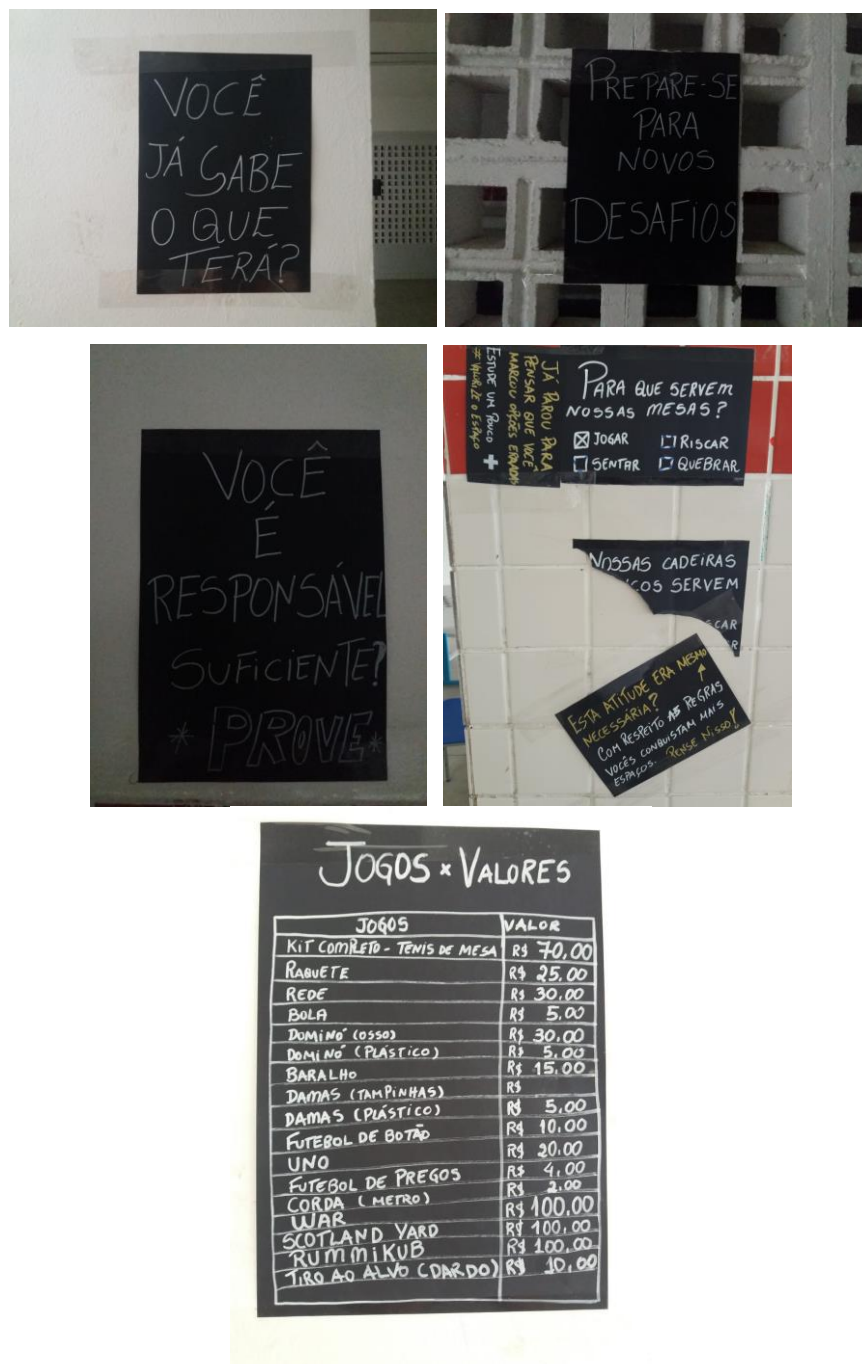 VOCÊ
JÁ SABE
O QUE
TERÁ?
PREPARE-SE
PARA
NOVOS
DESAFIOS
VOCÊ
É
RESPONSÁVEL
SUFICIENTE?
* PROVE *
JÁ PAROU PARA
PENSAR QUE VOCÊ
MARCOU OPÇÕES ERRADAS
ESTUDE UM POUCO +
# VALORIZE O ESPAÇO
PARA QUE SERVEM
NOSSAS MESAS?
JOGAR RISCAR
SENTAR QUEBRAR
NOSSAS CADEIRAS
COS SERVEM
SCAR
R
ESTA ATITUDE ERA MESMO
NECESSÁRIA?
COM RESPEITO AS REGRAS
VOCÊS CONQUISTAM MAIS
ESPAÇOS. PENSE NISSO!
JOGOS x VALORES
JOGOS VALOR
KIT COMPLETO - TENIS DE MESA R$ 70,00
RAQUETE R$ 25,00
REDE R$ 30,00
BOLA R$ 5,00
DOMINÓ (OSSO) R$ 30,00
DOMINÓ (PLÁSTICO) R$ 5,00
BARALHO R$ 15,00
DAMAS (TAMPINHAS) R$
DAMAS (PLÁSTICO) R$ 5,00
FUTEBOL DE BOTÃO R$ 10,00
UNO R$ 20,00
FUTEBOL DE PREGOS R$ 4,00
CORDA (METRO) R$ 2,00
WAR R$ 100,00
SCOTLAND YARD R$ 100,00
RUMMIKUB R$ 100,00
TIRO AO ALVO (DARDO) R$ 10,00